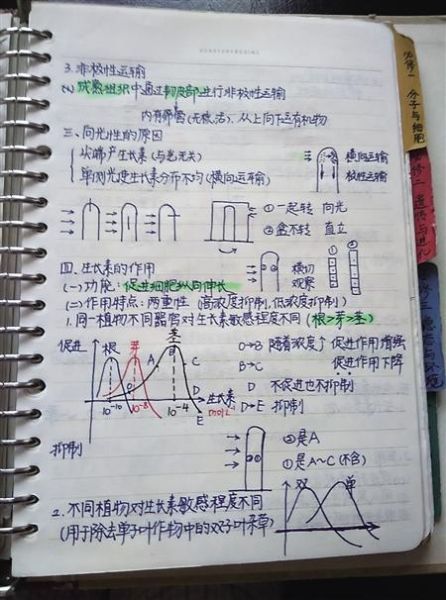 3. 非极性运输
成熟组织中通过韧皮部进行非极性运输
从上向下运有机物
三、向光性的原因
尖端产生长素(与光无关)
单侧光使生长素分布不均(横向运输)
横向运输
极性运输
①一起转 向光
②盒不转 直立
四、生长素的作用
(一)功能:促进细胞纵向伸长
横切
观察
(二)作用特点:两重性(高浓度抑制,低浓度抑制)
1.同一植物不同器官对生长素敏感程度不同(根>芽>茎)
促进
根
芽
茎
B
A
C
D
E
生长素
mol/L
10-10
10-8
10-4
抑制
O→B 随着浓度↑ 促进作用增强
B→C 促进作用下降
D 不促进也不抑制
D→E 抑制
②是A
①是A~C(不含)
2.不同植物对生长素敏感程度不同
(用于除去单子叶作物中的双子叶杂草)
双
单
必修一 分子与细胞